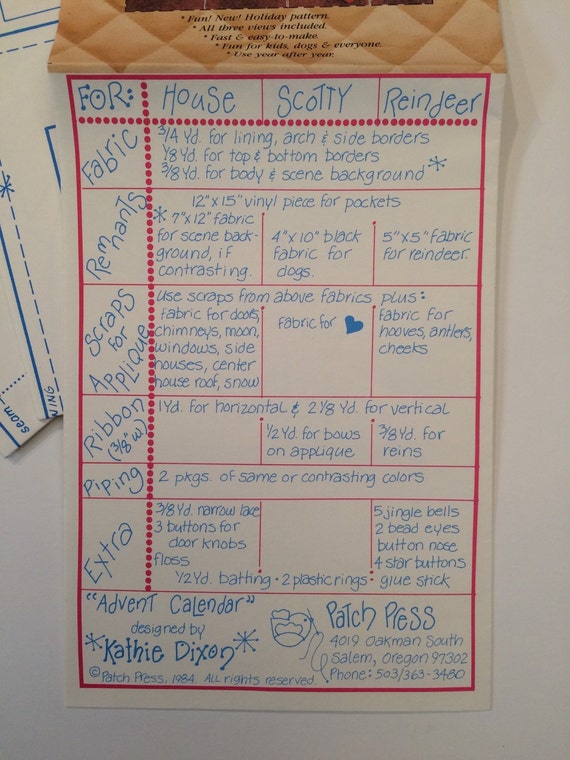 *Fun! New! Holiday pattern.
*All three views included.
*Fast & easy-to-make.
*Fun for kids, dogs & everyone.
*Use year after year.
FOR: HOUSE SCOTTY Reindeer
Fabric
3/4 Yd. for lining, arch & side borders
1/8 Yd. for top & bottom borders
3/8 Yd. for body & scene background*
Remnants
12"x15" vinyl piece for pockets
* 7"x12" fabric
for scene back-
ground, if
contrasting.
4"x10" black
fabric for
dogs.
5"x5" fabric
for reindeer.
SCRAPS
for
APPLIQUE
use scraps from above fabrics plus:
fabric for doors,
chimneys, moon,
windows, side
houses, center
house roof, snow
fabric for
fabric for
hooves, antlers,
cheeks
Ribbon
(3/8" w)
1 Yd. for horizontal & 2 1/8 Yd. for vertical
1/2 Yd. for bows
on applique
3/8 Yd. for
reins
Piping
2 pkgs. of same or contrasting colors
Extra
3/8 Yd. narrow lace
3 buttons for
door knobs
floss
5 jingle bells
2 bead eyes
button nose
4 star buttons
1/2 Yd. batting · 2 plastic rings · glue stick
"Advent Calendar"
designed by
*Kathie Dixon*
©Patch Press, 1984. All rights reserved.
Patch Press
4019 Oakman South
Salem, Oregon 97302
Phone: 503/363-3480
seam